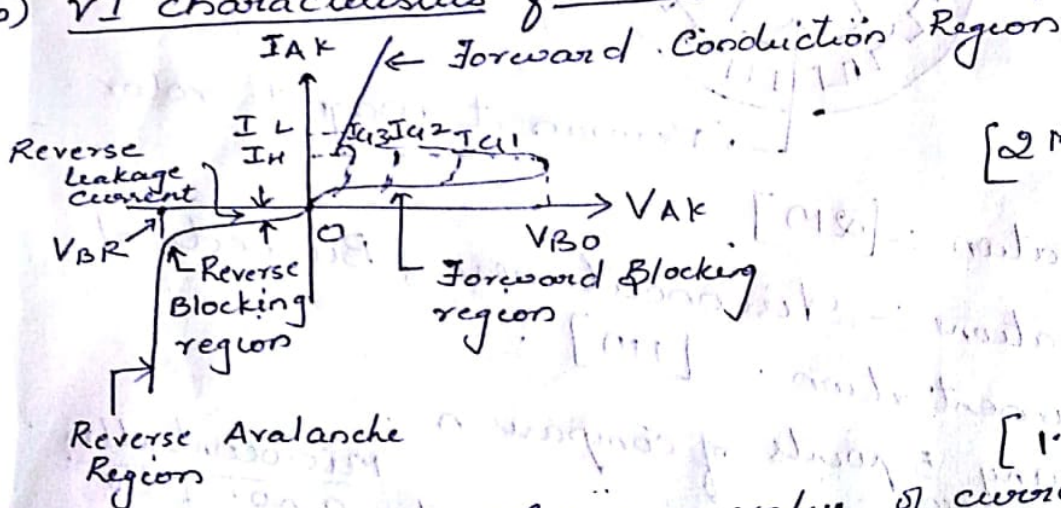 b) VI Characteristics of
IAK
← Forward Conduction Region
IL
IH
IG3 IG2 IG1
[2
Reverse
Leakage
Current
VAK
VBR
O
VBO
Reverse
Blocking
region
Forward Blocking
region
Reverse Avalanche
Region
[1